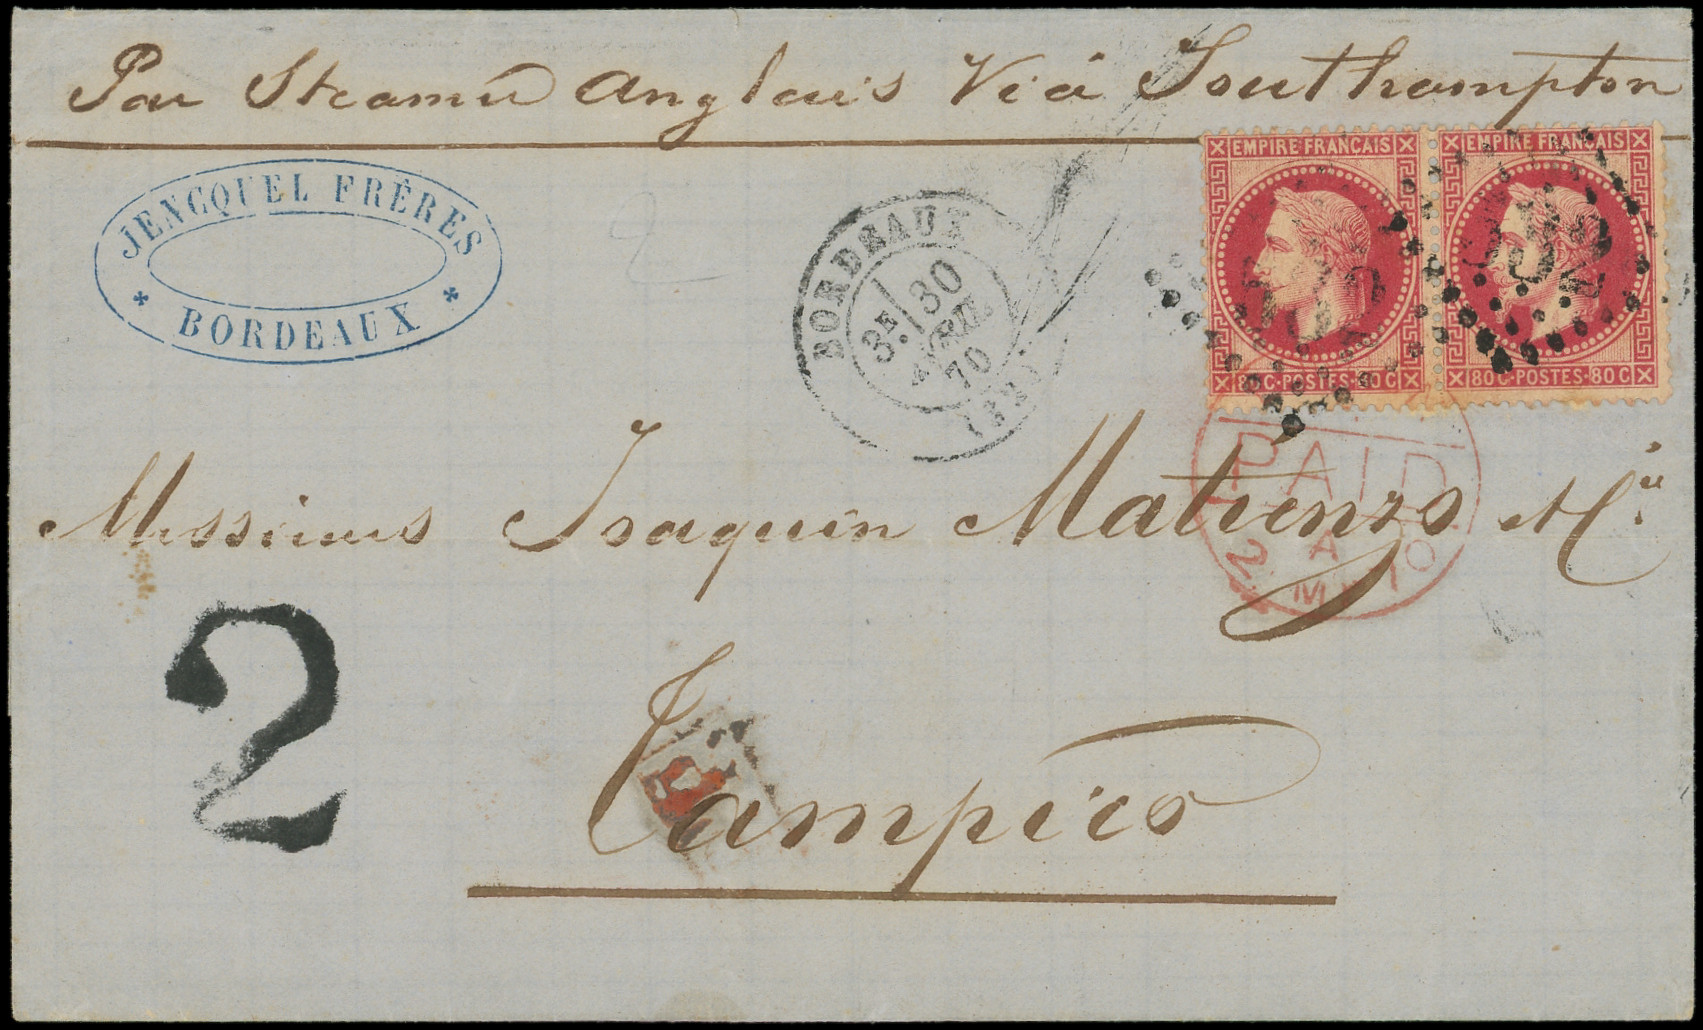 Par Steamer Anglais Viâ Southampton
JENCQUEL FRÈRES
* BORDEAUX *
BORDEAUX
3E 30
AVRIL
70
(32)
EMPIRE FRANÇAIS
80 C · POSTES · 80 C
EMPIRE FRANÇAIS
80 C · POSTES · 80 C
532
532
PAID
A
2 MY 70
2
Messieurs Joaquin Matienzo & Cie
2
Tampico